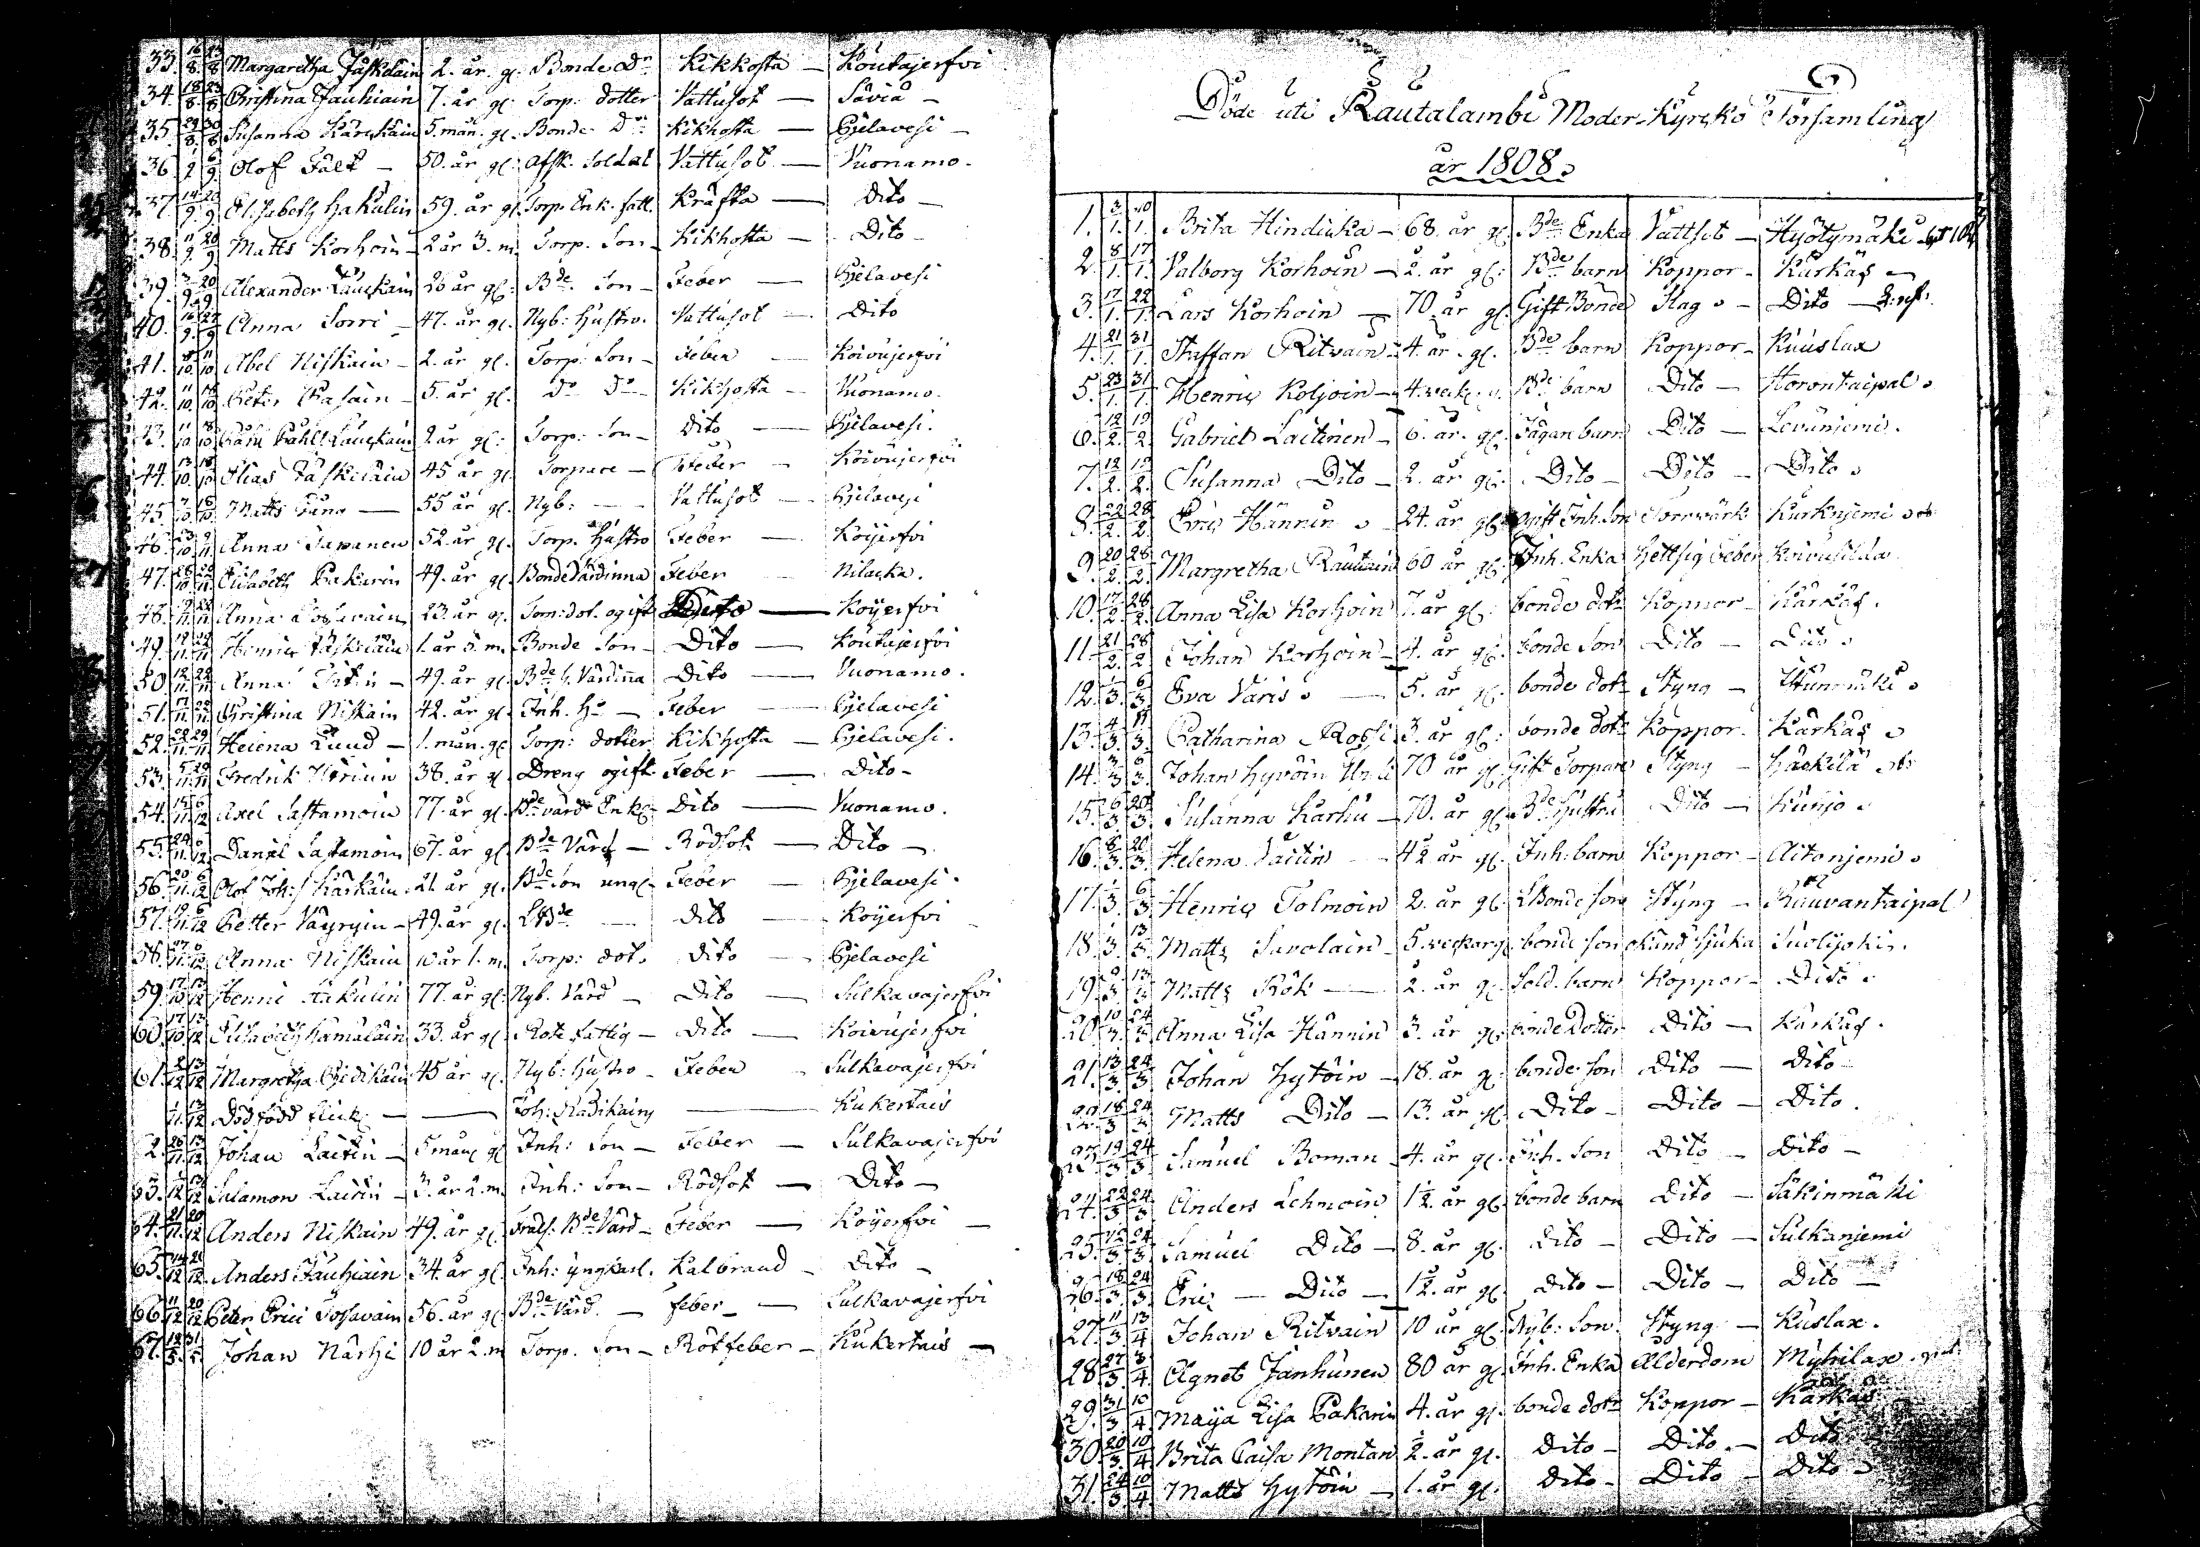 33. 16/8 23/8 Margaretha Jäskeläin 2. år gl. Bonde Dr. Kikhosta — Koutajerfvi
34. 18/8 23/8 Christina Jauhiain 7. år gl. Torp. dotter Vattusot — Savia —
35. 29/8 30/8 Susanna Kärckäin 5. mån. gl. Bonde Dr. Kikhosta — Pjelavesi —
36 Olof Fält — 50. år gl. Afsk. Soldat Vattusot — Vuonamo.
37. 14/9 20/9 Elisabeth Hakulin 59. år gl. Torp. Enk. fatt. Kräfta — Dito —
38. 11/9 20/9 Matts Korhoin — 2 år 3. m. Torp. Son — Kikhosta — Dito —
39. 20/9 Alexander Lauckain 26 år gl. Bde. Son — Feber — Pjelavesi
40. 16/9 27/9 Anna Sorri — 47. år gl. Nyb: Hustro. Vattusot — Dito
41. Abel Niskain — 2. år gl. Torp: Son — Feber — Koivujerfvi
42. Peter Pasain — 5. år gl. Do Do — Kikhosta — Vuonamo.
43. Påhl Lauckain 2 år gl: Torp: Son — Dito — Pjelavesi.
44. 13/10 18/10 Elias Jäskeläin 45 år gl Torpare — Feber — Koivujerfvi
45. 7/10 18/10 Matts — 55 år gl. Nyb: — Vattusot — Pjelavesi
46. Anna Tapanen 52. år gl. Torp. Hustro Feber — Koijerfvi
47. Elisabeth Pakarin 49. år gl. Bonde Värdinna Feber — Nilacka.
48. Anna 23. år gl. ogift — Koyerfvi
49. Henric Jäskeläin 1. år 5. m. Bonde Son — Dito — Koutajerfvi
50 12/11 22/11 Anna — 49. år gl. Bde Värdinna Dito — Vuonamo.
51. Christina Niskain 42. år gl. Inh. Hu — Feber — Pjelavesi
52. Helena Lund — 1. mån. gl Torp: dotter Kikhosta — Pjelavesi.
53. Fredrik 38. år gl Dreng ogift Feber — Dito —
54. Axel Sastamoin 77. år gl. Bde värd Enkl: Dito — Vuonamo.
55. Daniel Sastamoin 67. år gl Bde Värd — Rödsot — Dito —
56. 20/11 6/12 Olof Joh: Kärkäin 21 år gl. Bde Son ungk. Feber — Pjelavesi.
57. Petter Väyryin — 49. år gl. Bde — Dito — Koyerfvi
58. Anna Niskain 10 år 1. m. Torp: dot. Dito — Pjelavesi
59 17/10 13/12 Henric Hakulin 77. år gl. Nyb. Värd — Dito — Sulkavajerfvi
60. 17/10 13/12 Elisabeth Hämäläin 33. år gl Rote fattig — Dito — Koivujerfvi
61. 2/12 13/12 Margretha 45 år gl. Nyb: Hustro — Feber — Sulkavajerfvi
13/12 Död född flick: — Joh: — Kukertais
2. 26/11 13/12 Johan Laitin — 5 mån: gl Inh: Son — Feber — Sulkavajerfvi
63. Salamon Laitin — 3. år 2. m. Inh: Son — Rödsot — Dito —
64. 21/11 20/12 Anders Niskain 49. år gl. Bde Värd — Feber — Koyerfvi —
65. Anders Jauhiain 34. år gl Inh: yngkarl. Kalbrand — Dito —
66. 11/12 20/12 Peter Erici Tossavain 56. år gl. Bde Värd. — feber — Sulkavajerfvi
67. Johan Närhi 10 år 2. m Torp. Son — Rötfeber — Kukertais —
Döde uti Rautalambi Moder-Kyrcko Församling
år 1808.
1. 3/1 10/1 Brita Hindicka — 68. år gl. Bde Enka Vattsot — Hyötymäki
2. 8/1 17/1 Valborg Korhoin — 2. år gl: Bde barn Koppor — Kärkäs —
3. 17/1 22/1 Lars Korhoin — 70. år gl. Gift Bonde Slag. — Dito —
4. 21/1 31/1 Staffan Ritvain — 4. år gl. Bde barn Koppor — Kuuslax
5. 23/1 31/1 Henric Koljoin — 4. veck: g. Bde barn Dito — Horontaipal.
6. 12/2 19/2 Gabriel Laitinen — 6. år gl. barn Dito — Levänjemi.
7. 12/2 19/2 Susanna Dito — 2. år gl. Dito — Dito — Dito.
8. 22/2 28/2 Eric Hännin. 24. år gl. ogift Inh. Son Torrvärk Kurknjemi
9. 20/2 28/2 Margretha Rautiain 60 år gl. Inh. Enka Hettsig Feber Koivusilda
10. 17/2 28/2 Anna Lisa Korhoin 7. år gl. bonde dotr Koppor — Kärkäs.
11. 21/2 28/2 Johan Korhoin — 4. år gl. bonde Son Dito — Dito.
12. 1/3 6/3 Eva Varis. — 5. år gl. bonde dotr Styng —
13. Catharina Rossi 3. år gl: bonde dotr Koppor. Kärkäs.
14. 3/3 6/3 Johan Hyvöin 70 år gl. Gift Torpare Styng — Häckilä
15. 6/3 20/3 Susanna Karhu — 70. år gl. Bde Hustru Dito — Kunjo.
16. 8/3 20/3 Helena Laitin — 4½ år gl. Inh: barn Koppor — Aitonjemi.
17. Henric Tolmoin 2. år gl. Bonde Son Styng — Rauvantaipal
18. Matts Savolain — 5. veckor gl. bonde Son okänd sjuka Suolijoki.
19. Matts Rök — 2. år gl. Sold. barn Koppor — Dito.
20. 10/3 24/3 Anna Lisa Hännin 3. år gl. bonde Dotter Dito — Kärkäs.
21. 13/3 24/3 Johan Hytöin — 18. år gl. bonde Son Dito — Dito
22. 18/3 24/3 Matts Dito — 13. år gl. Dito — Dito — Dito.
23. 19/3 24/3 Samuel Boman — 4. år gl. Inh. Son Dito — Dito —
24. 22/3 24/3 Anders Lehmoin 1½. år gl. bonde barn Dito — Säkinmäki
25. 24/3 Samuel Dito — 8. år gl. Dito — Dito — Sulkanjemi
26. 18/3 24/3 Eric — Dito — 1½. år gl. Dito — Dito — Dito —
27. 11/3 13/4 Johan Ritvain 10 år gl. Nyb: Son. Styng — Kuslax.
28. 27/3 3/4 Agnet Janhunen 80 år gl. Inh. Enka Ålderdom Myhilax.
29. 31/3 10/4 Maija Lisa Pakarin 4. år gl. bonde dotr Koppor — Kärkäs
30. 20/3 10/4 Brita Caisa Montan 2. år gl. Dito — Dito. — Dito.
31. 24/3 10/4 Matts Hytöin — 1. år gl. Dito — Dito — Dito —